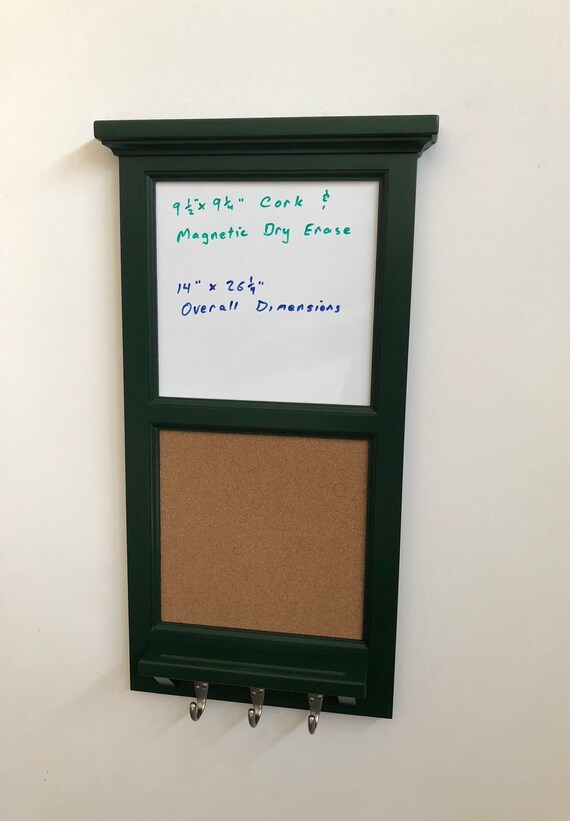 9 1/2" x 9 1/4" Cork &
Magnetic Dry Erase
14" x 26 1/4"
Overall Dimensions